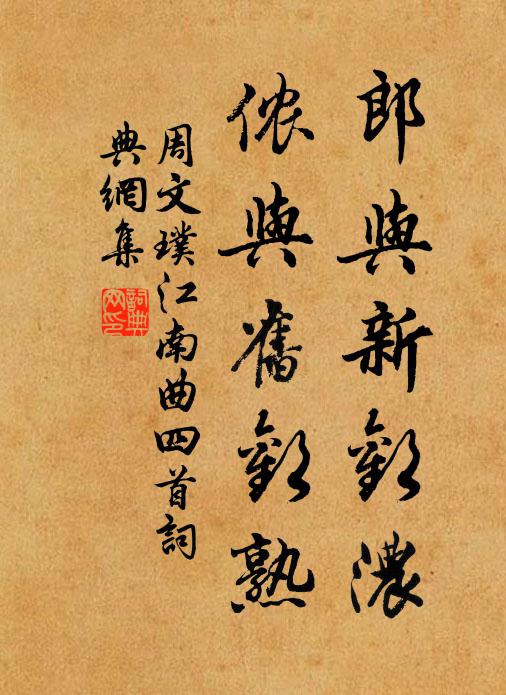 郎與新歡濃
儂與舊歡熟
周文璞江南曲四首詞
典網集
詞典網印